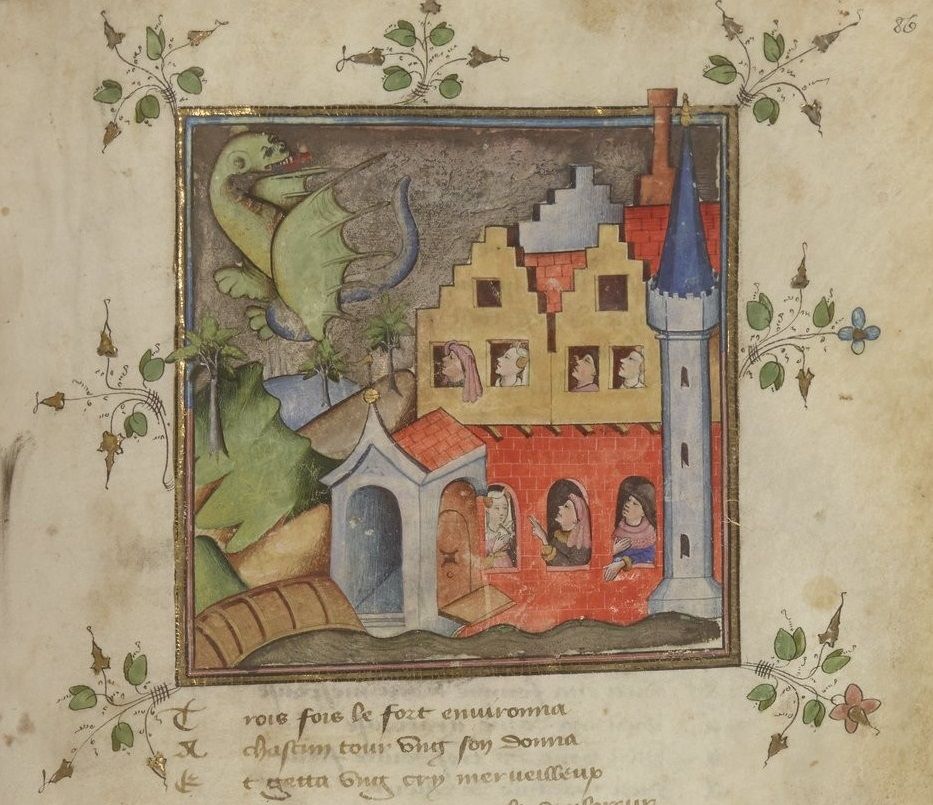 86
T rois fois le fort enuironna
A chascun tour vng son donna
E t getta vng cry merueilleux